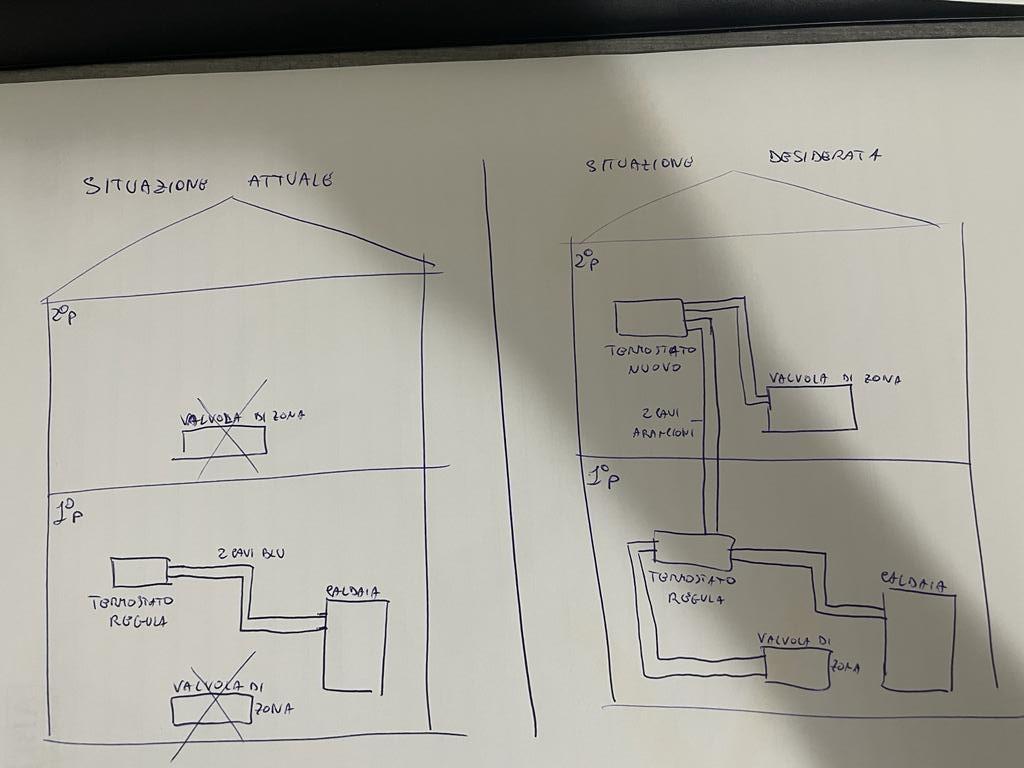 SITUAZIONE ATTUALE
2° P
VALVOLA DI ZONA
1° P
2 CAVI BLU
TERMOSTATO
REGULA
CALDAIA
VALVOLA DI
ZONA
SITUAZIONE DESIDERATA
2° P
TERMOSTATO
NUOVO
VALVOLA DI ZONA
2 CAVI
ARANCIONI
1° P
TERMOSTATO
REGULA
CALDAIA
VALVOLA DI
ZONA